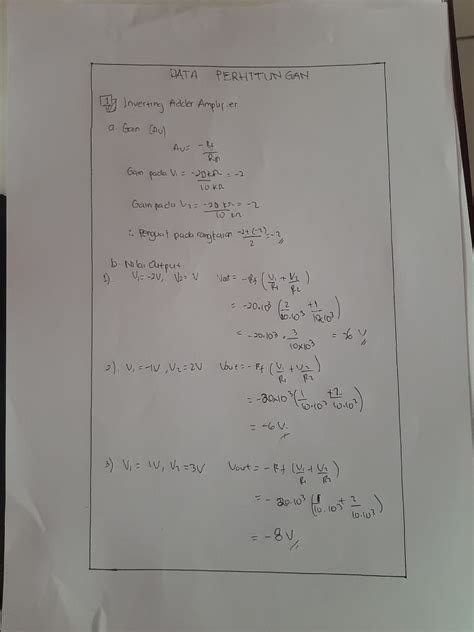 DATA PERHITUNGAN
1 Inverting Adder Amplifier
a. Gain (Av)
Av = -Rf / Rin
Gain pada V1 = -20 kΩ / 10 kΩ = -2
Gain pada V2 = -20 kΩ / 10 kΩ = -2
∴ Penguat pada rangkaian -2+(-2) / 2 = -2
b. Nilai Output
1). V1 = -2V, V2 = V Vout = -Rf (V1/R1 + V2/R2)
= -20.10³ (2/10.10³ + 1/10x10³)
= -20.10³ . 3/10x10³ = -6 V
2) V1 = -1V, V2 = 2V Vout = -Rf (V1/R1 + V2/R2)
= -20x10³ (1/10.10³ + 2/10.10³)
= -6V
3) V1 = 1V, V2 = 3V Vout = -Rf (V1/R1 + V2/R2)
= -20.10³ (1/10.10³ + 3/10.10³)
= -8V